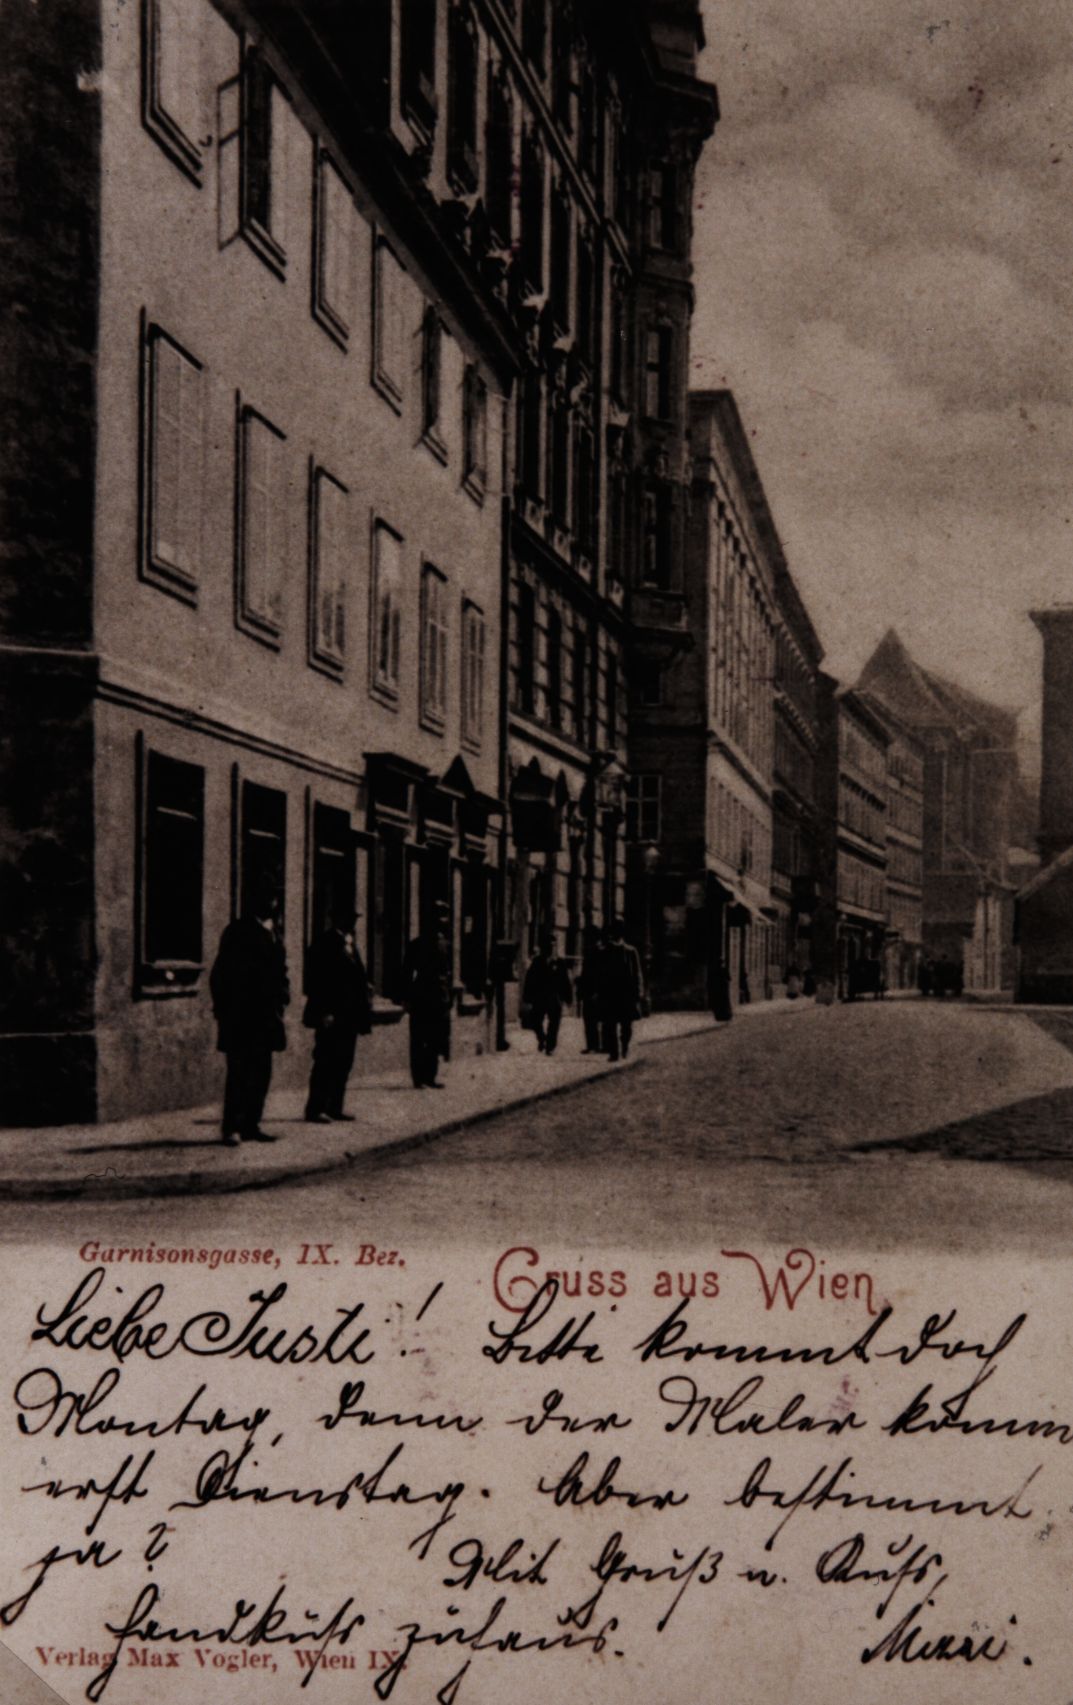 Garnisonsgasse, IX. Bez.
Gruss aus Wien
Liebe Justi! Bitte kommt doch
Montag, denn der Maler komm
erst Dienstag. Aber bestimmt
ja?
Mit Gruß u. Kuß,
Handkuß zuhaus.
Mizzi.
Verlag Max Vogler, Wien IX.